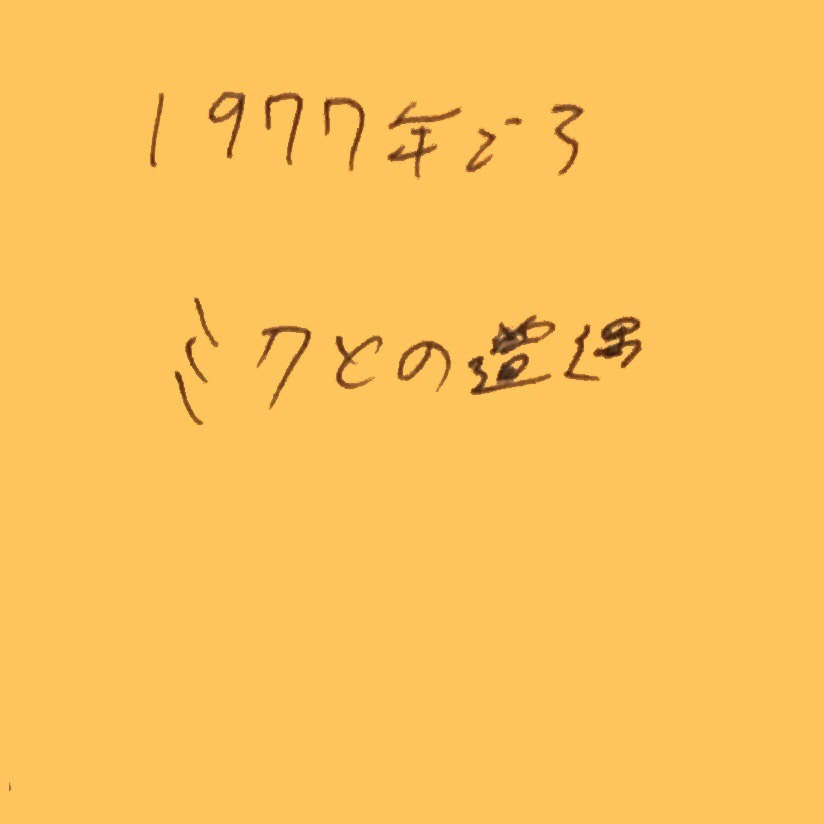 1977年ごろ
ミクとの遭遇